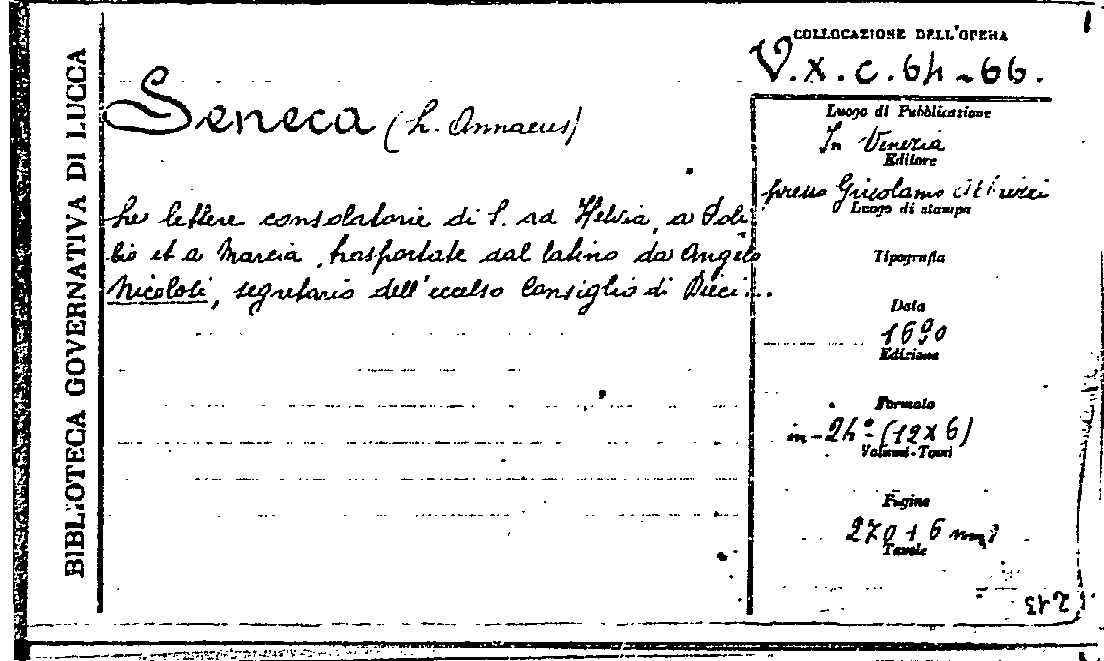 BIBLIOTECA GOVERNATIVA DI LUCCA
Seneca (L. Annaeus)
Le lettere consolatorie di S. ad Helvia, a Poli-
bio et a Marcia, trasportate dal latino da Angelo
Nicolosi, segretario dell'eccelso Consiglio di Dieci...
COLLOCAZIONE DELL'OPERA
V.X.C.64-66.
Luogo di Pubblicazione
In Venezia
Editore
presso Girolamo Albrizzi
Luogo di stampa
Tipografia
Data
1690
Edizione
Formato
in-24º-(12x6)
Volumi-Tomi
Pagine
270+6
Tavole